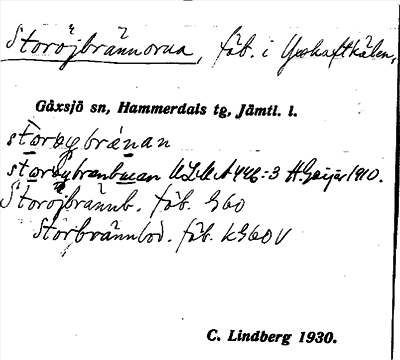 Storöjbrännorna, fäb. i Yxskaftkälen,
Gåxsjö sn, Hammerdals tg, Jämtl. l.
storøybrénan
storøybrenbuan ULMA 446:3 H.Geijer 1910.
Storöjbrännb. fäb. G60
Storbrännbod. fäb. kG60V
C. Lindberg 1930.